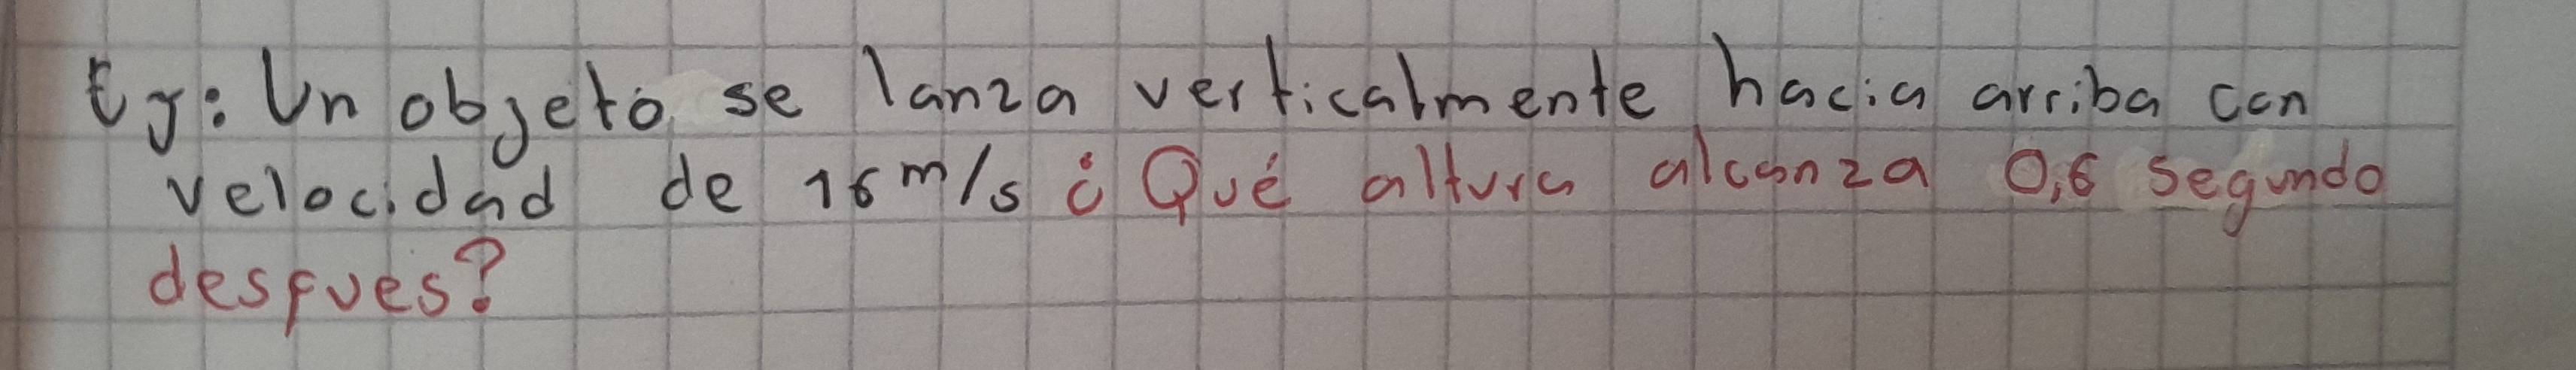 Ej: Un objeto se lanza verticalmente hacia arriba con
velocidad de 16 m/s ¿Qué altura alcanza 0,6 segundo
despues?